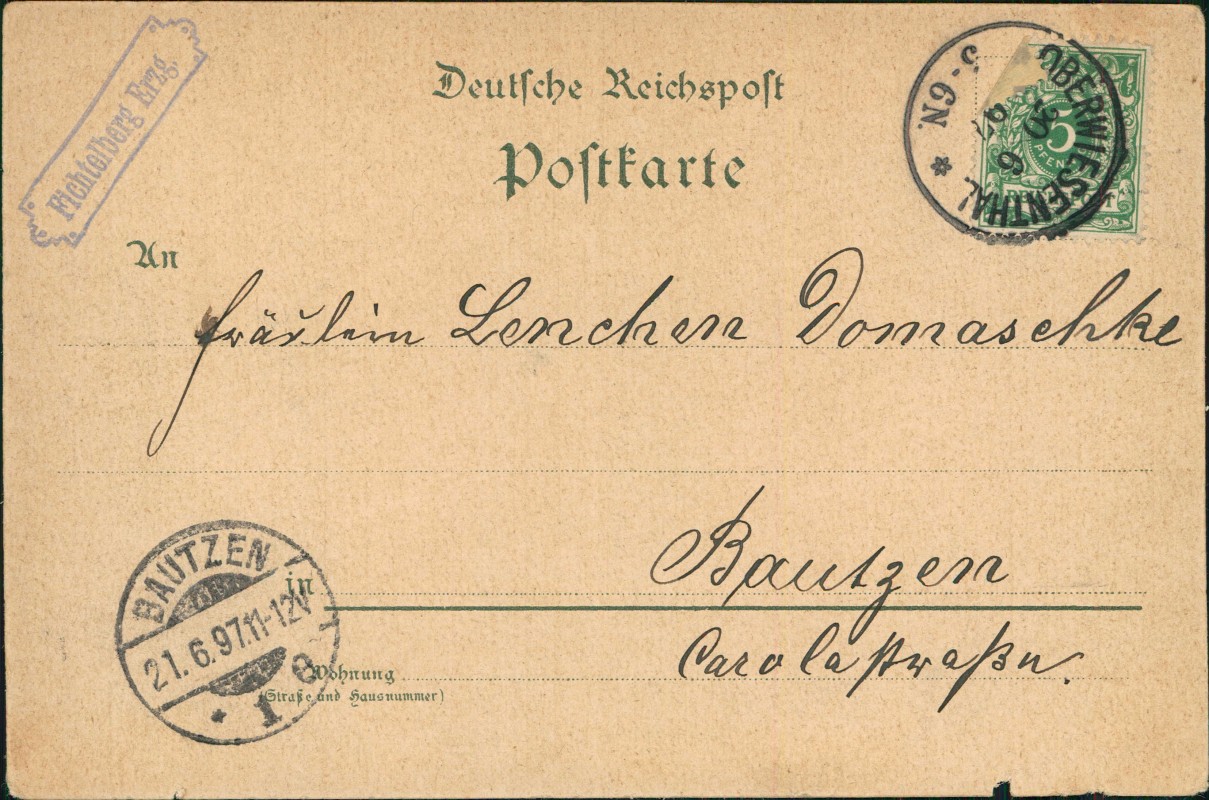 Fichtelberg Erzg.
Deutsche Reichspost
Postkarte
OBERWIESENTHAL
20 6
97
5-6N.
5
PFENNIG
An
Fräulein Lenchen Domaschke
in Bautzen
Wohnung Carolastraße.
(Straße und Hausnummer)
BAUTZEN
21.6.97.11-12V
* 1 e